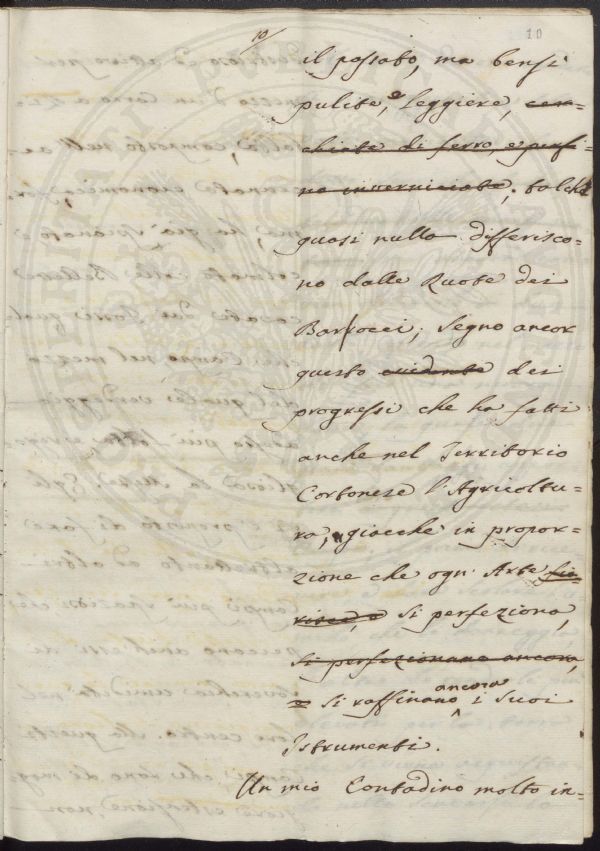 10/ 10
il passato, ma bensi
pulite, e leggiere, cer=
chiate di ferro, e perfi=
no inverniciate, talchè
quasi nulla differisco=
no dalle Ruote dei
Barrocci; Segno ancor
questo evidente dei
progressi che ha fatti
anche nel Territorio
Cortonese l'Agricoltu=
ra, giacchè in propor=
zione che ogn' Arte fio=
risce, e si perfeziona,
si perfezionano ancora,
e si raffinano ancora i suoi
Istrumenti.
Un mio Contadino molto in=